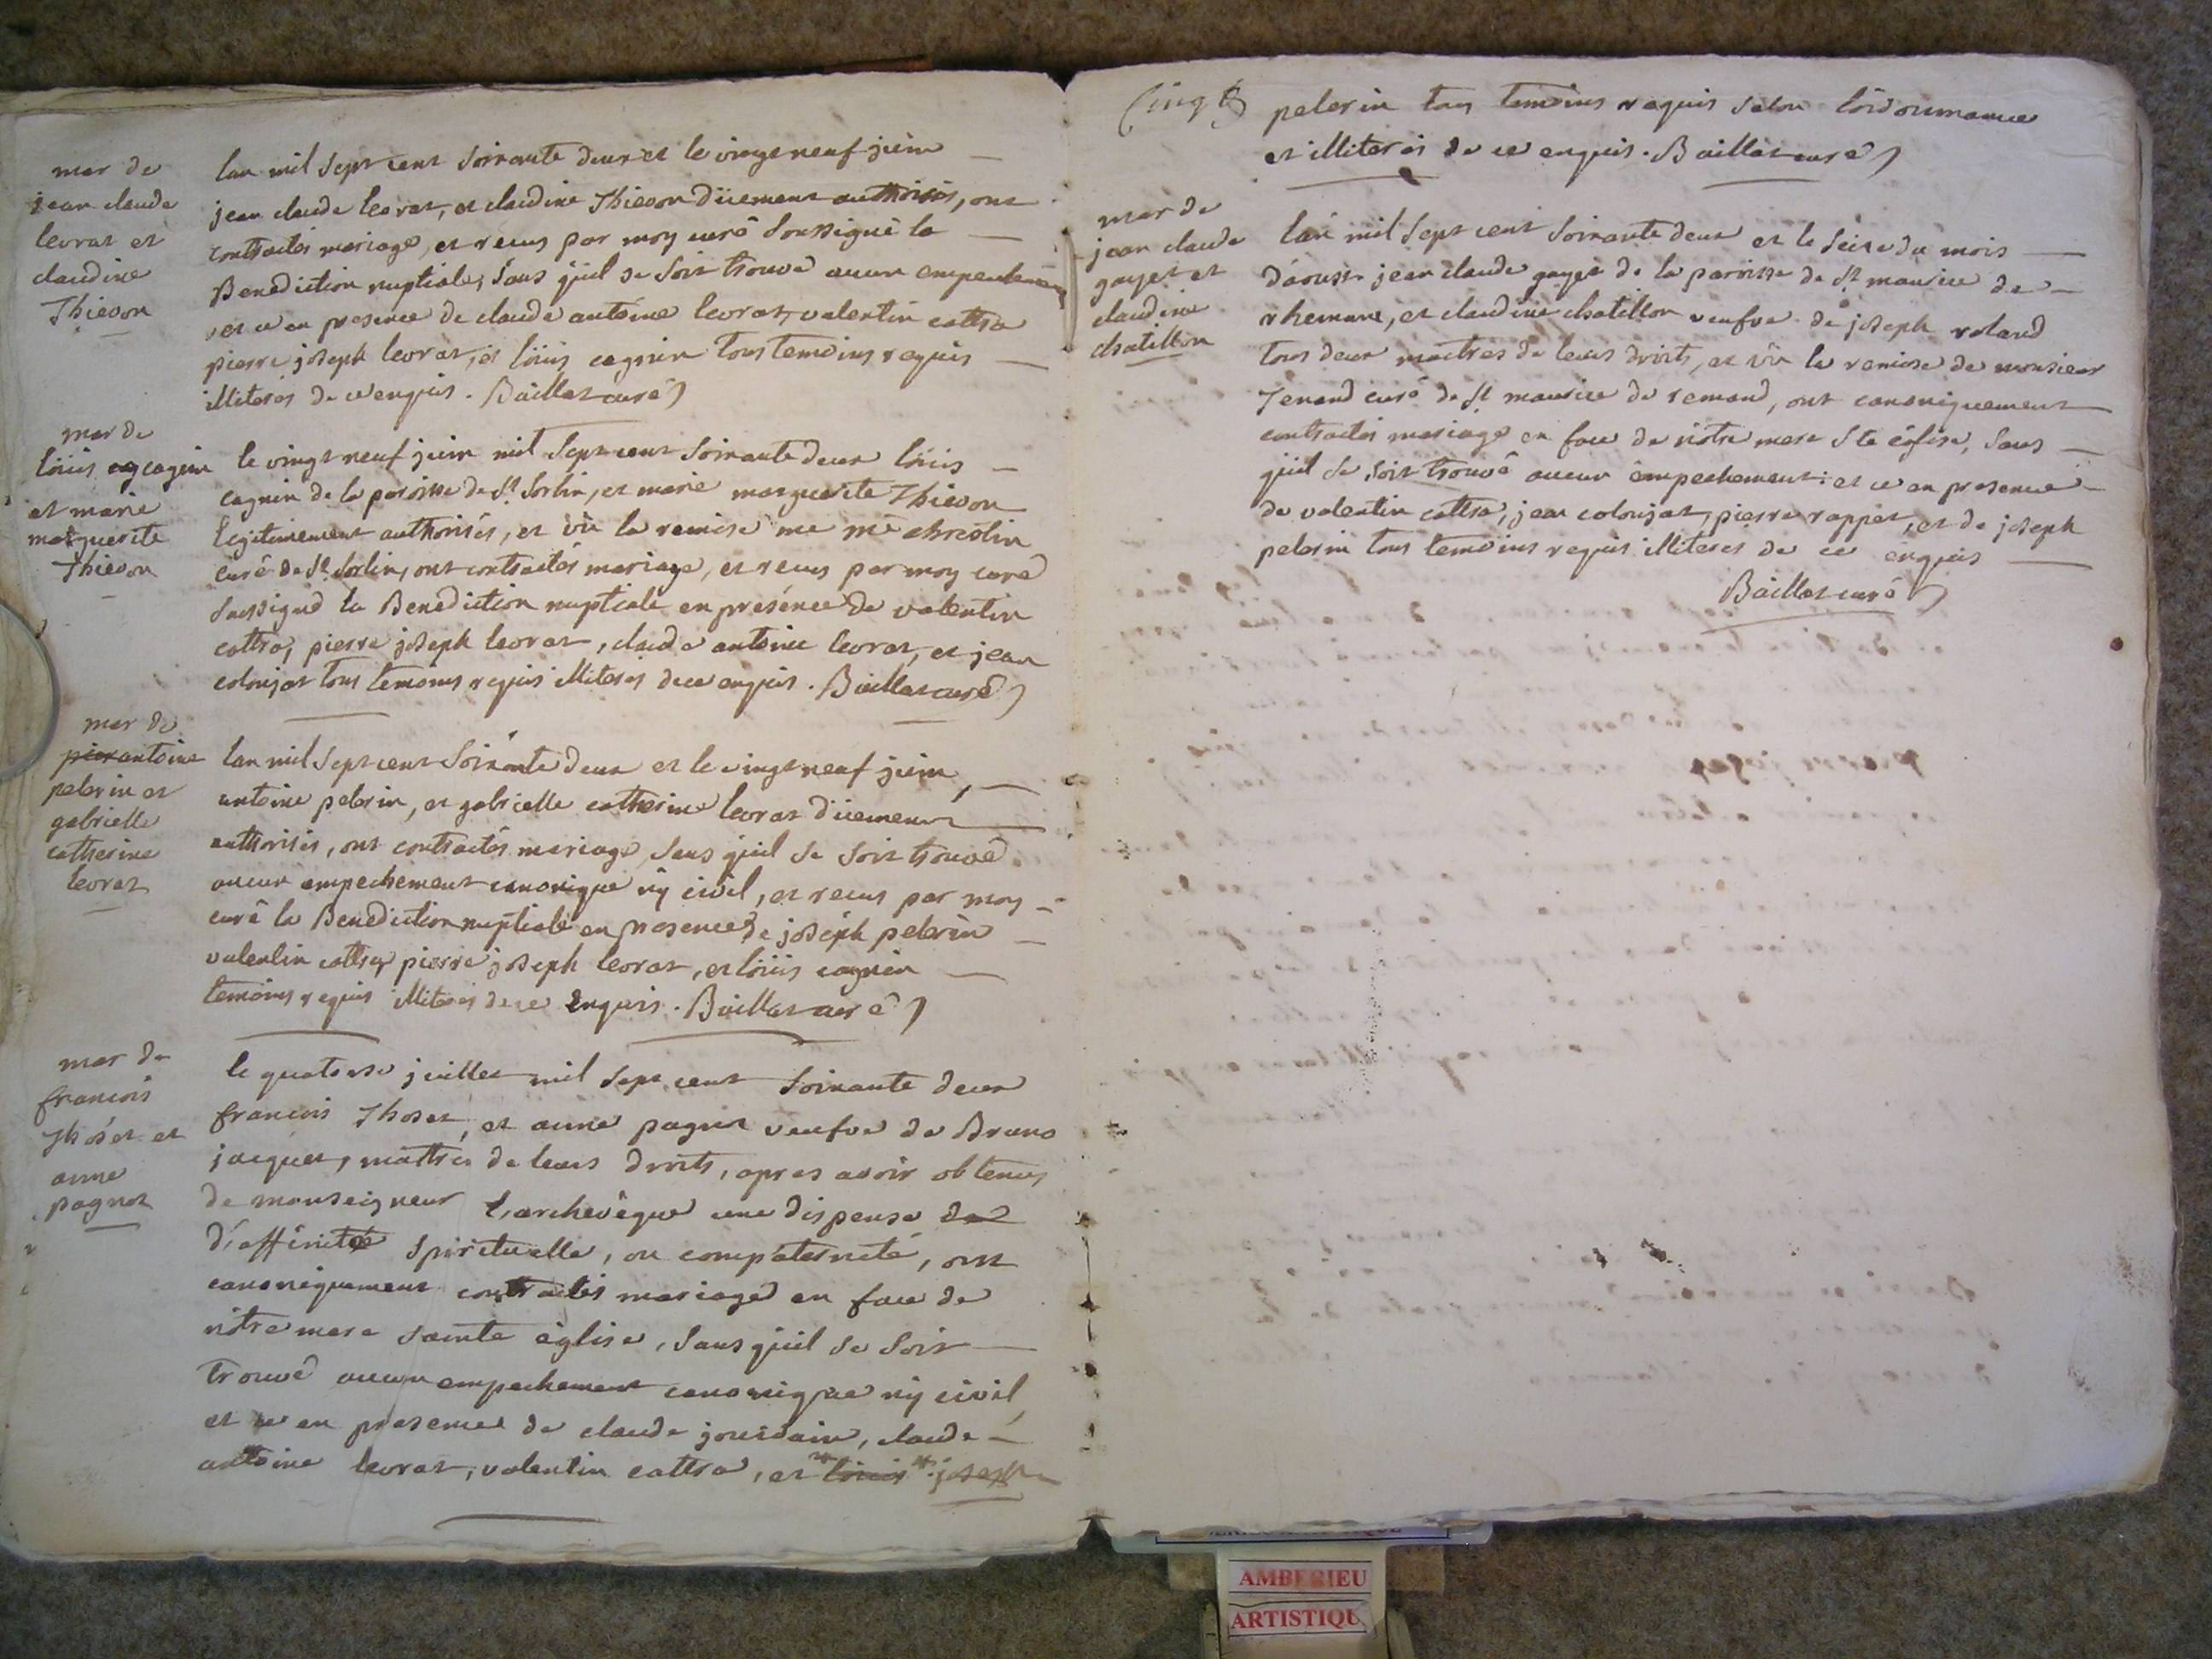 mar de
jean claude
levrat et
claudine
Thievon
lan mil sept cent soixante deux et le vingt neuf juin
jean claude levrat, et claudine Thievon düement authorisés, ont
contractés mariage, et recus par moy curé soussigné la
Benediction nuptiale, sans qüil se soit trouvé aucun empechement
et ce en presence de claude antoine levrat, valentin cottra
pierre joseph levrat, et loüis cagnin tous temoins requis
illiterés de ce enquis. Baillat curé
mar de
loüis cagnin
et marie
marguerite
Thievon
le vingt neuf juin mil sept cent soixante deux loüis
cagnin de la paroisse de St Sorlin, et marie marguerite Thievon
legitimement authorisés, et vü la remise me mr chreslin
curé de St Sorlin, ont contractés mariage, et recus par moy curé
sussigné la Benediction nuptiale en présence de valentin
cottra, pierre joseph levrat, claude antoine levrat, et jean
colonjat tous temoins requis illiterés de ce enquis. Baillat curé
mar de
pier antoine
pelerin et
gabrielle
catherine
levrat
lan mil sept cent soixante deux et le vingt neuf juin,
antoine pelerin, et gabrielle catherine levrat düement
authorisés, ont contractés mariage sans qüil se soit trouvé
aucun empechement canonique ny civil, et recus par moy
curé la Benediction nuptiale en presence de joseph pelerin
valentin cottra, pierre joseph levrat, et loüis cagnin
temoins requis illiterés de ce enquis. Baillat curé
mar de
francois
Thoset et
anne
pagnot
le quatorse juillet mil sept cent soixante deux
francois Thoset, et anne pagnot veufve de Bruno
jacquet, maîtres de leurs droits, apres avoir obtenus
de monseigneur l'archevêque une dispense de
d'affinité spirituelle, ou compaternité, ont
canoniquement contractés mariage en face de
nôtre mere sainte église, sans qüil se soit
trouvé aucun empechement canonique ny civil,
et ce en presence de claude jourdain, claude
antoine levrat, valentin cottra, et loüis joseph
pelerin tous temoins requis selon l'ordonnance
et illiterés de ce enquis. Baillat curé
mar de
jean claude
gayet et
claudine
chatillon
l'an mil sept cent soixante deux et le seize du mois
d'aoust jean claude gayet de la paroisse de St maurice de
rhemans, et claudine chatillon veufve de joseph roland
tous deux maitres de leurs droits, et vü la remise de monsieur
Tenand curé de St maurice de remand, ont canoniquement
contractés mariage en face de nôtre mere Ste église, sans
qüil se soit trouvé aucun empechement: et ce en presence
de valentin cottra, jean colonjat, pierre rappet, et de joseph
pelerin tous temoins requis illiterés de ce enquis
Baillat curé
AMBERIEU
ARTISTIQU